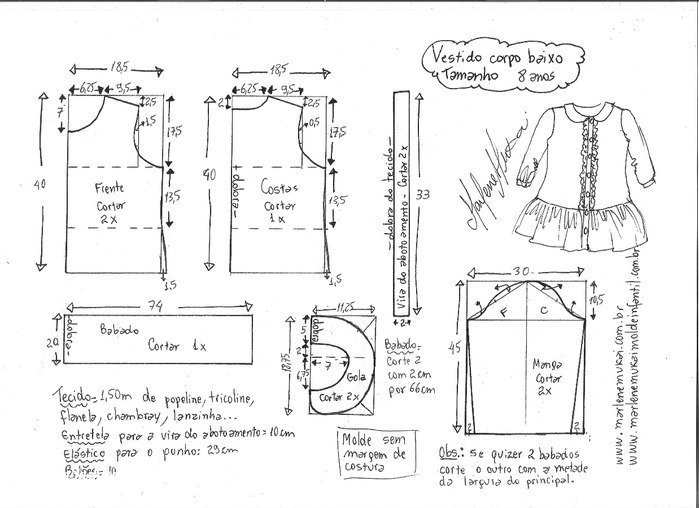 Vestido corpo baixo
Tamanho 8 anos
18,5
6,25
9,5
7
2,5
1,5
17,5
40
13,5
Frente
Cortar
2x
1,5
18,5
6,25
9,5
2
2,5
0,5
17,5
40
13,5
dobra
Costas
Cortar
1x
1,5
dobra do tecido
Vira do abotoamento - Cortar 2x
33
2
74
20
dobra
Babado
Cortar 1x
11,25
18,75
dobra
5
2
7
6,75
Gola
Cortar 2x
Babado=
Corte 2
com 2cm
por 66cm
30
10,5
45
F
C
Manga
Cortar
2x
2
2
www.marlenemukai.com.br
www.marlenemukaimoldeinfantil.com.br
Tecido= 1,50m de popeline, tricoline,
flanela, chambray, lanzinha...
Entretela para a vira do abotoamento= 10cm
Elástico para o punho= 23cm
Botões= 10
Molde sem
margem de
costura
Obs.: Se quizer 2 babados
corte o outro com a metade
da largura do principal.